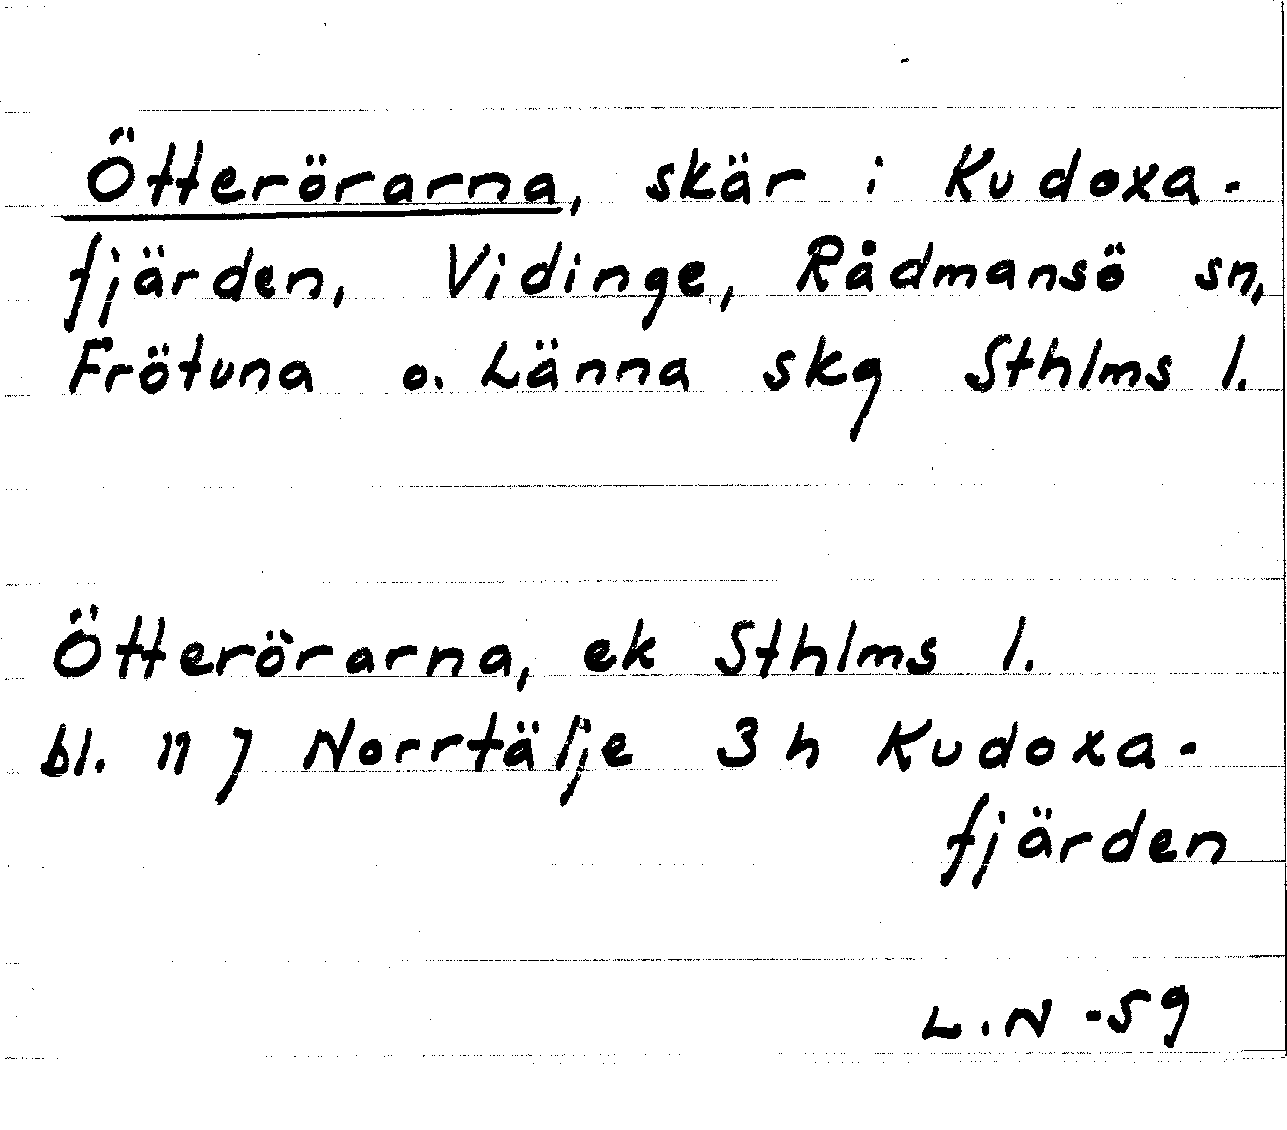 Ötterörarna, skär i Kudoxa-
fjärden, Vidinge, Rådmansö sn,
Frötuna o. Länna skg Sthlms l.
Ötterörarna, ek Sthlms l.
bl. 11 J Norrtälje 3 h Kudoxa-
fjärden
L.N -59